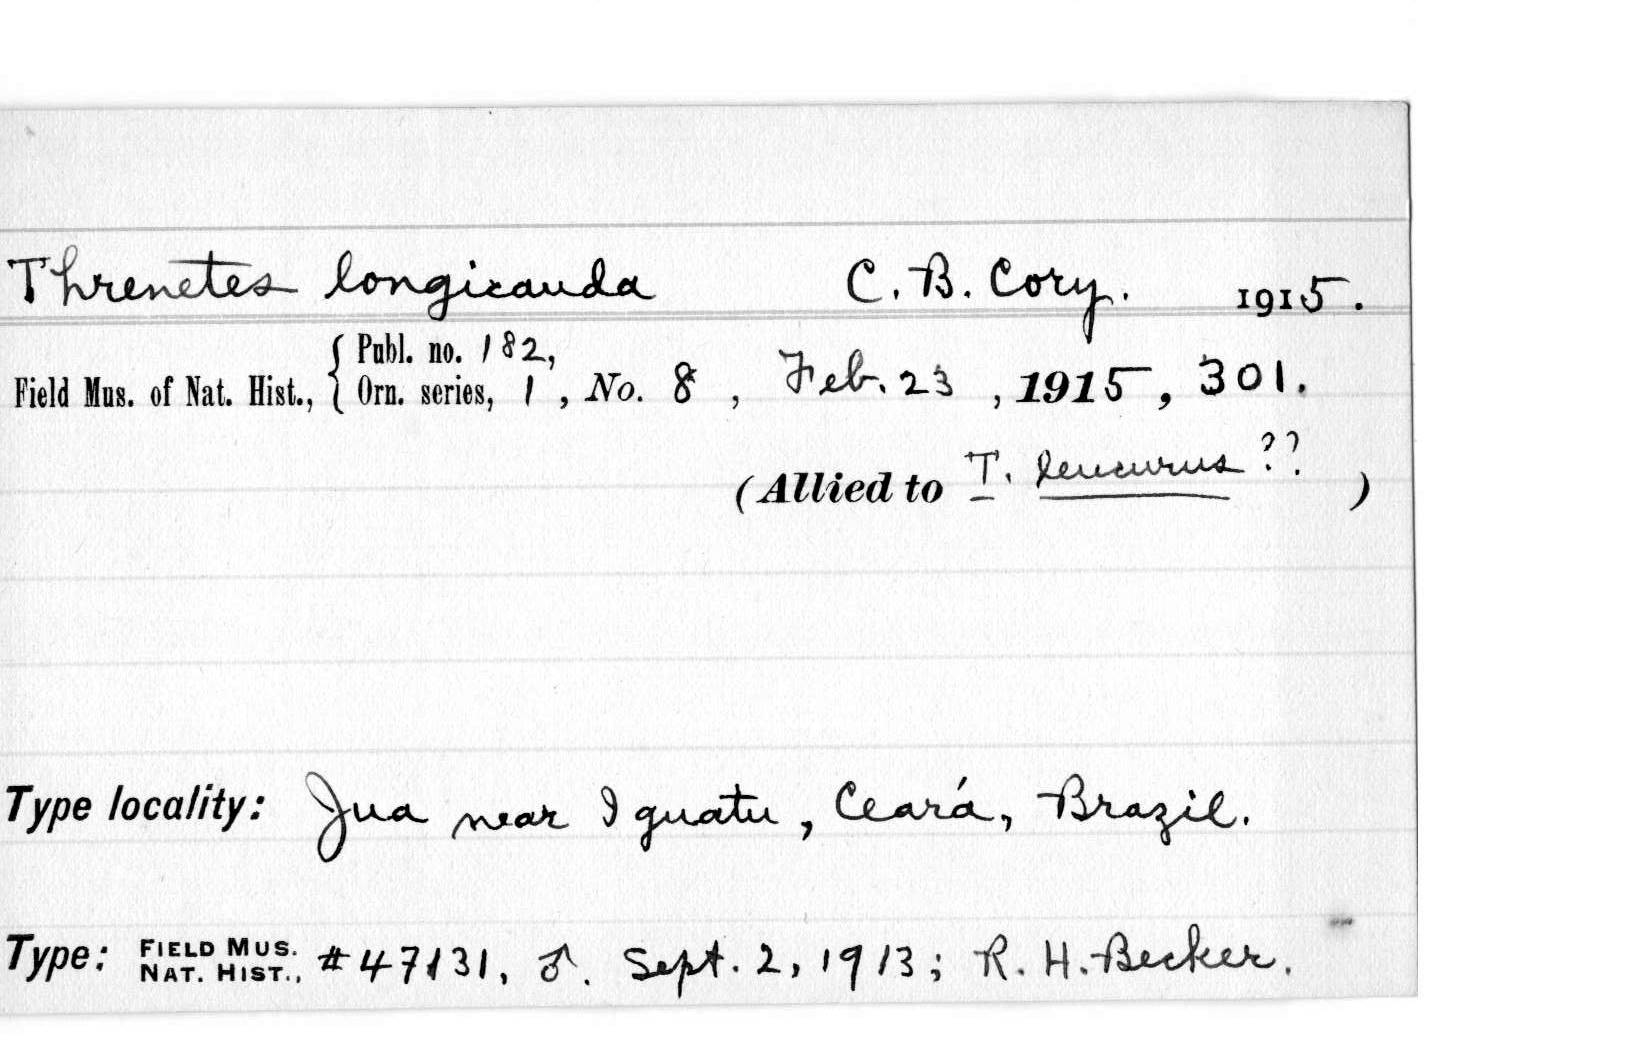 Threnetes longicauda C. B. Cory. 1915.
Publ. no. 182,
Field Mus. of Nat. Hist., { Orn. series, 1, No. 8, Feb. 23, 1915, 301.
(Allied to T. leucurus ?? )
Type locality: Jua near Iguatu, Ceará, Brazil.
Type: FIELD MUS. NAT. HIST., #47131, ♂. Sept. 2, 1913; R. H. Becker.